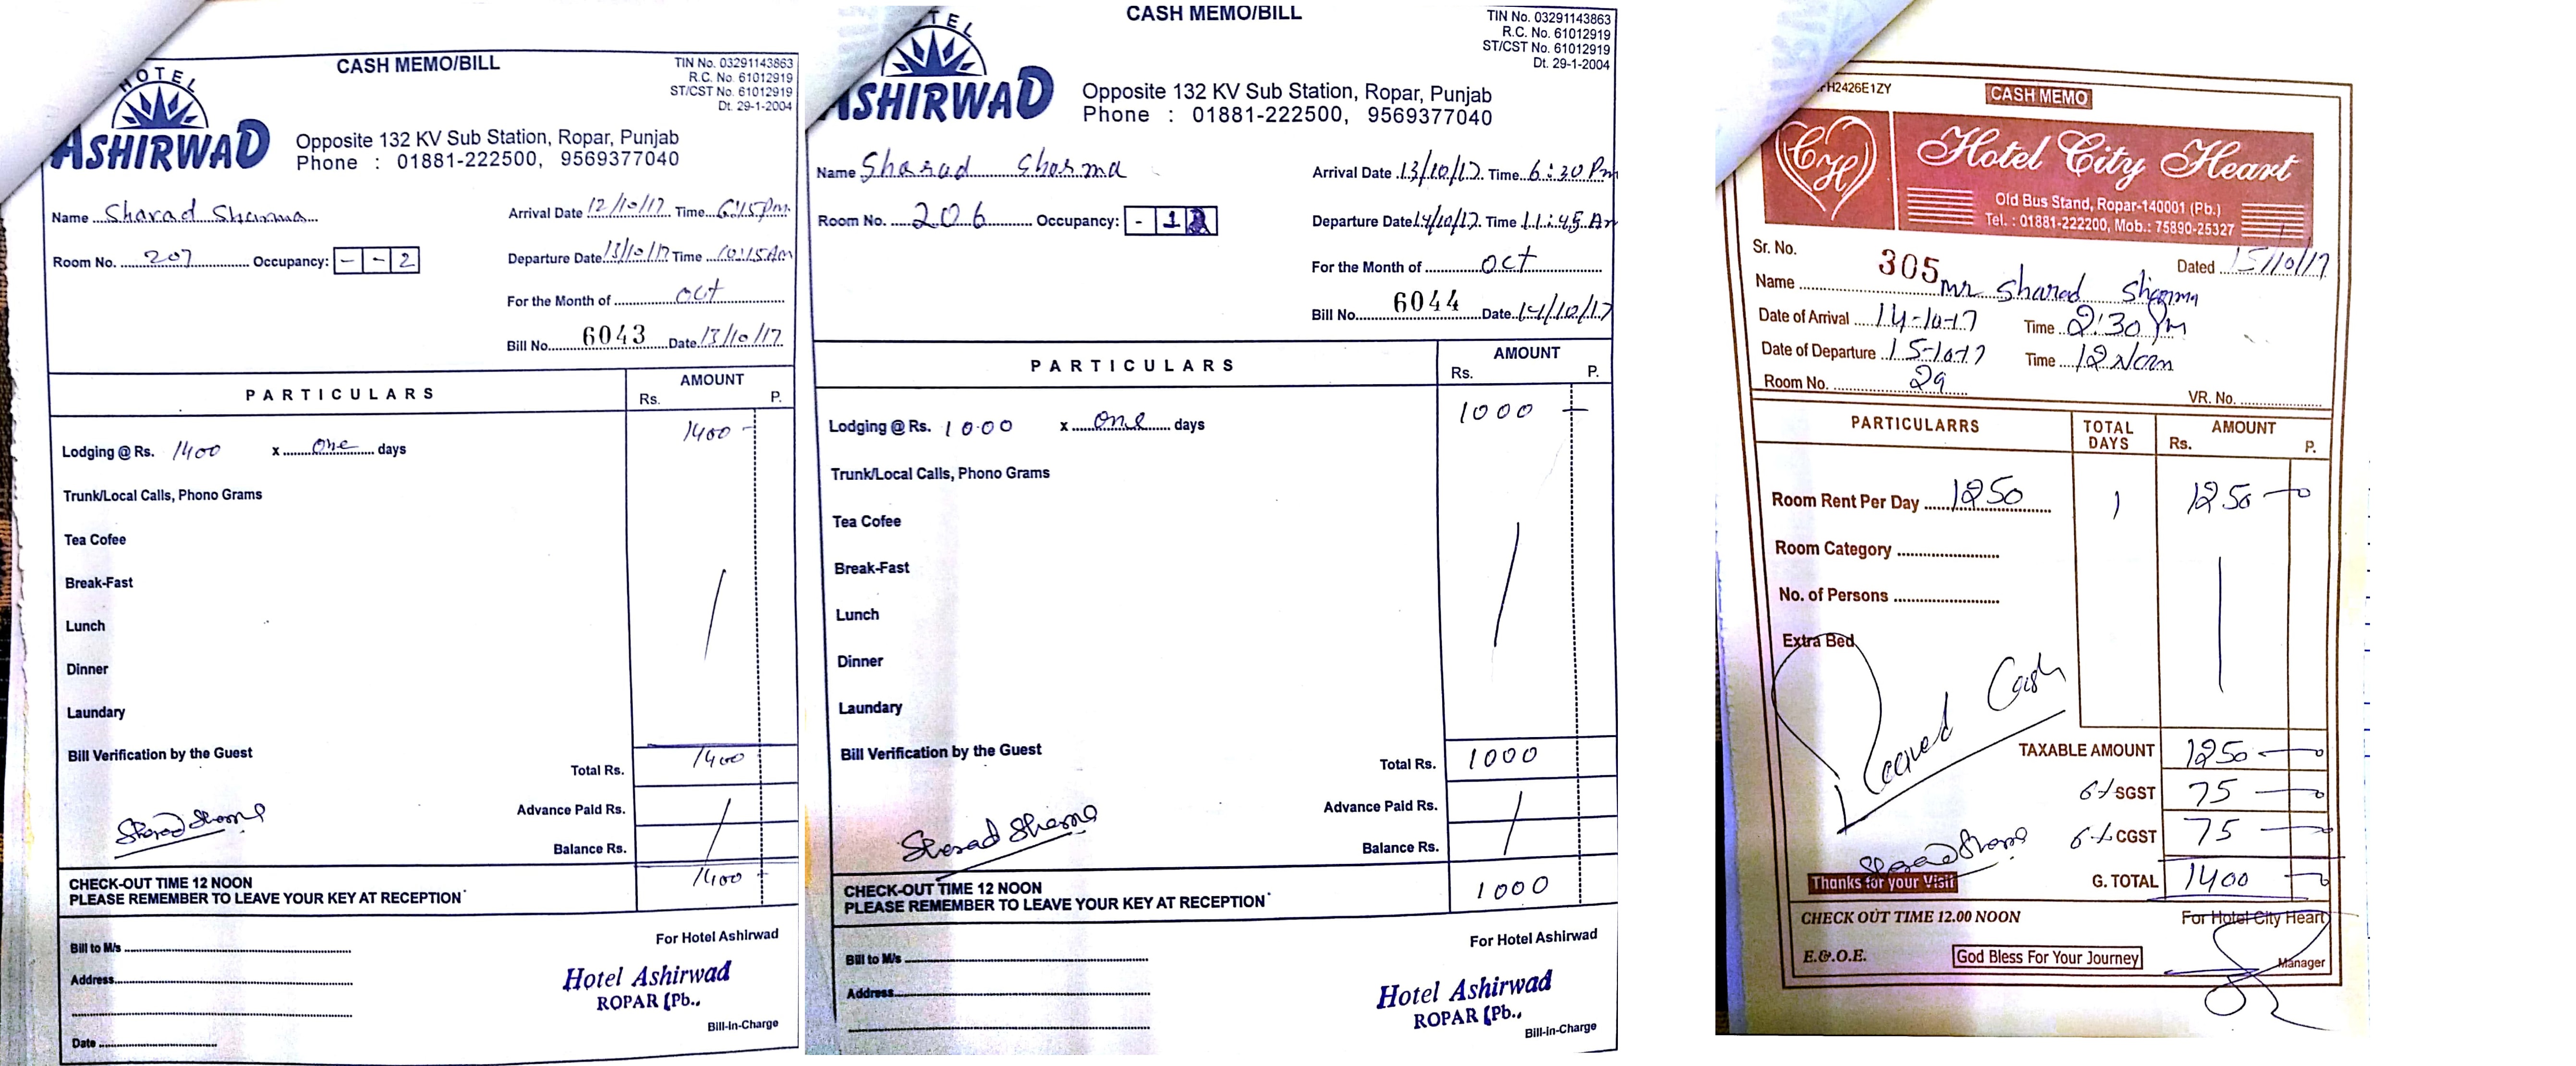 HOTEL
ASHIRWAD
CASH MEMO/BILL
TIN No. 03291143863
R.C. No. 61012919
ST/CST No. 61012919
Dt. 29-1-2004
Opposite 132 KV Sub Station, Ropar, Punjab
Phone : 01881-222500, 9569377040
Name Sharad Sharma
Arrival Date 12/10/17 Time 6:15 Pm
Room No. 207 Occupancy: - - 2
Departure Date 13/10/17 Time 10:15 Am
For the Month of Oct
Bill No. 6043 Date 13/10/17
PARTICULARS AMOUNT
Rs. P.
Lodging @ Rs. 1400 x one days 1400 -
Trunk/Local Calls, Phono Grams
Tea Cofee
Break-Fast
Lunch
Dinner
Laundary
Bill Verification by the Guest
Total Rs. 1400
Sharad Sharma
Advance Paid Rs.
Balance Rs.
CHECK-OUT TIME 12 NOON
PLEASE REMEMBER TO LEAVE YOUR KEY AT RECEPTION
1400
Bill to M/s
For Hotel Ashirwad
Address
Hotel Ashirwad
ROPAR (Pb.,
Bill-In-Charge
Date
TEL
ASHIRWAD
CASH MEMO/BILL
TIN No. 03291143863
R.C. No. 61012919
ST/CST No. 61012919
Dt. 29-1-2004
Opposite 132 KV Sub Station, Ropar, Punjab
Phone : 01881-222500, 9569377040
Name Sharad Sharma
Arrival Date 13/10/17 Time 6:30 Pm
Room No. 206 Occupancy: - 1
Departure Date 14/10/17 Time 11:45 Am
For the Month of Oct
Bill No. 6044 Date 14/10/17
PARTICULARS AMOUNT
Rs. P.
Lodging @ Rs. 1000 x one days 1000 -
Trunk/Local Calls, Phono Grams
Tea Cofee
Break-Fast
Lunch
Dinner
Laundary
Bill Verification by the Guest
Total Rs. 1000
Sharad Sharma
Advance Paid Rs.
Balance Rs.
CHECK-OUT TIME 12 NOON
PLEASE REMEMBER TO LEAVE YOUR KEY AT RECEPTION
1000
Bill to M/s
For Hotel Ashirwad
Address
Hotel Ashirwad
ROPAR (Pb.,
Bill-In-Charge
H2426E1ZY
CASH MEMO
CH
Hotel City Heart
Old Bus Stand, Ropar-140001 (Pb.)
Tel. : 01881-222200, Mob.: 75890-25327
Sr. No. 305 Dated 15/10/17
Name Mr Sharad Sharma
Date of Arrival 14-10-17 Time 2:30 Pm
Date of Departure 15-10-17 Time 12 Noon
Room No. 29
VR. No.
PARTICULARRS TOTAL DAYS AMOUNT
Rs. P.
Room Rent Per Day 1250 1 1250
Room Category
No. of Persons
Extra Bed
Cash
TAXABLE AMOUNT 1250
6% SGST 75
6% CGST 75
Sharad Sharma
Thanks for your Visit
G. TOTAL 1400
CHECK OUT TIME 12.00 NOON
For Hotel City Heart
E.&.O.E.
God Bless For Your Journey
Manager